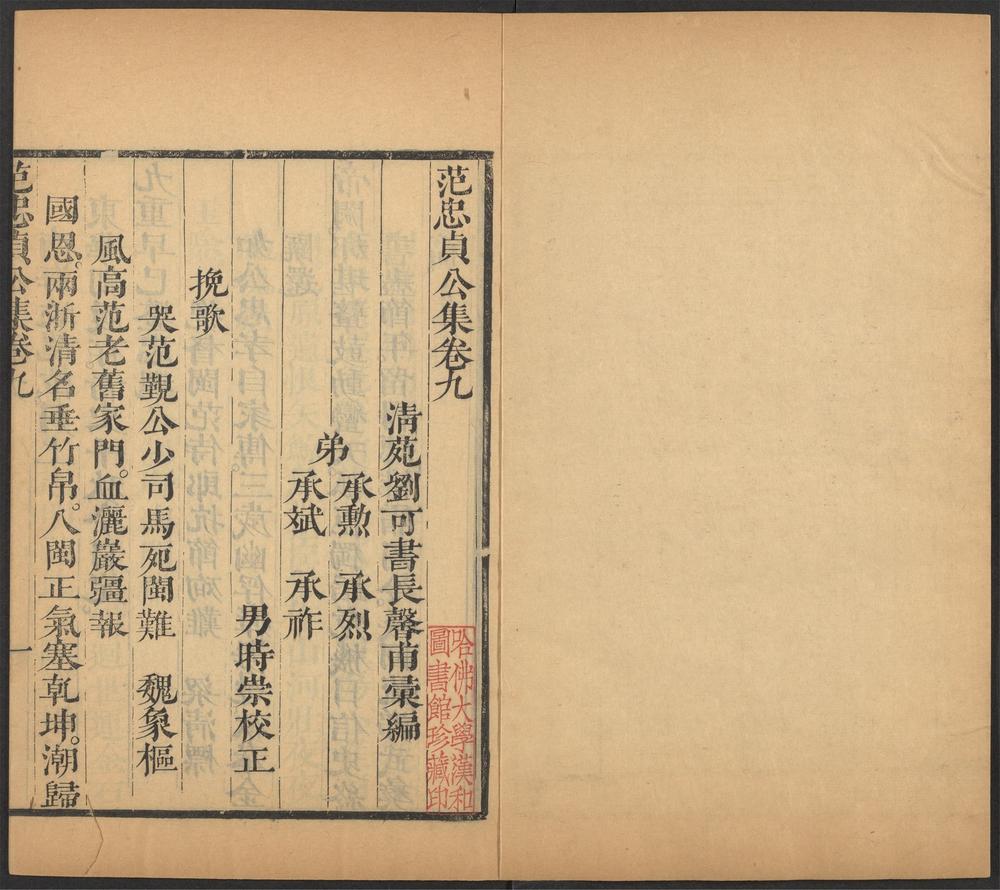 范忠貞公集卷九
清苑劉可書長馨甫彙編
弟
承勲 承烈
承斌 承祚
男時崇校正
挽歌
哭范覲公少司馬死閩難 魏象樞
風高范老舊家門。血灑巖疆報
國恩。兩浙清名垂竹帛。八閩正氣塞乾坤。潮歸
范忠貞公集卷九
一
哈佛大學漢和
圖書館珍藏印